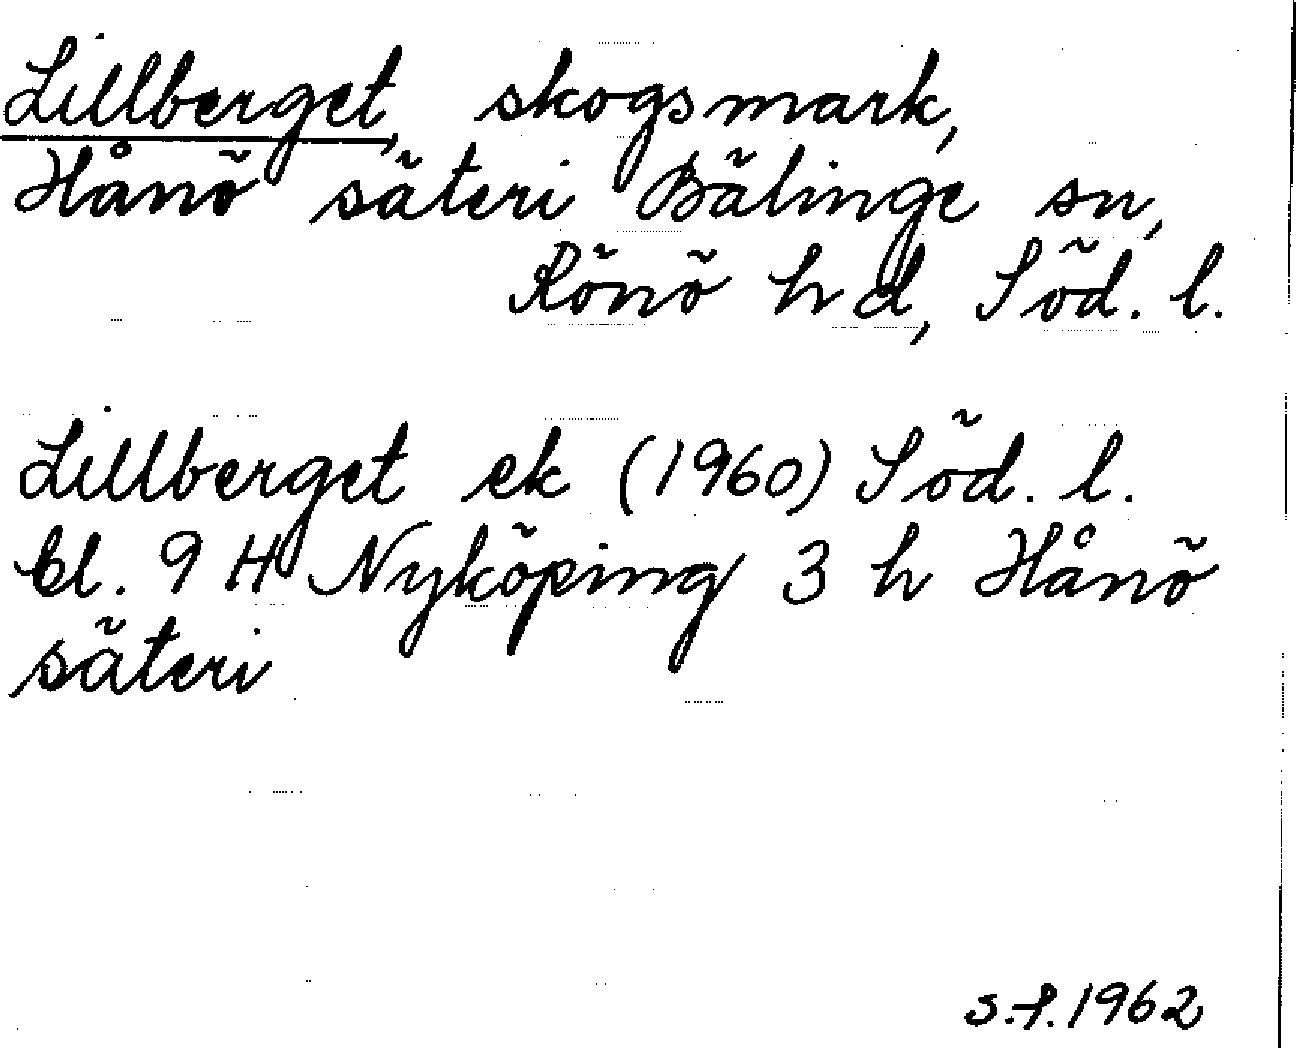 Lillberget, skogsmark,
Hånö säteri Bälinge sn,
Rönö hd, Söd. l.
Lillberget ek (1960) Söd. l.
bl. 9 H Nyköping 3 h Hånö
säteri
s.f. 1962